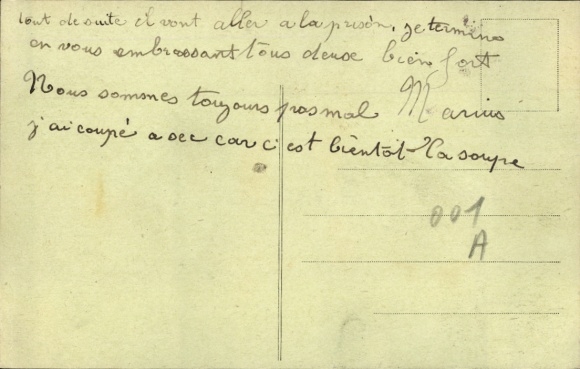 tout de suite il vont aller a la prison, je termine
en vous embrassant tous deuse bien fort
Nous sommes toujours pas mal Marius
j'ai coupé a sec car c'est bientot la soupe
001
A